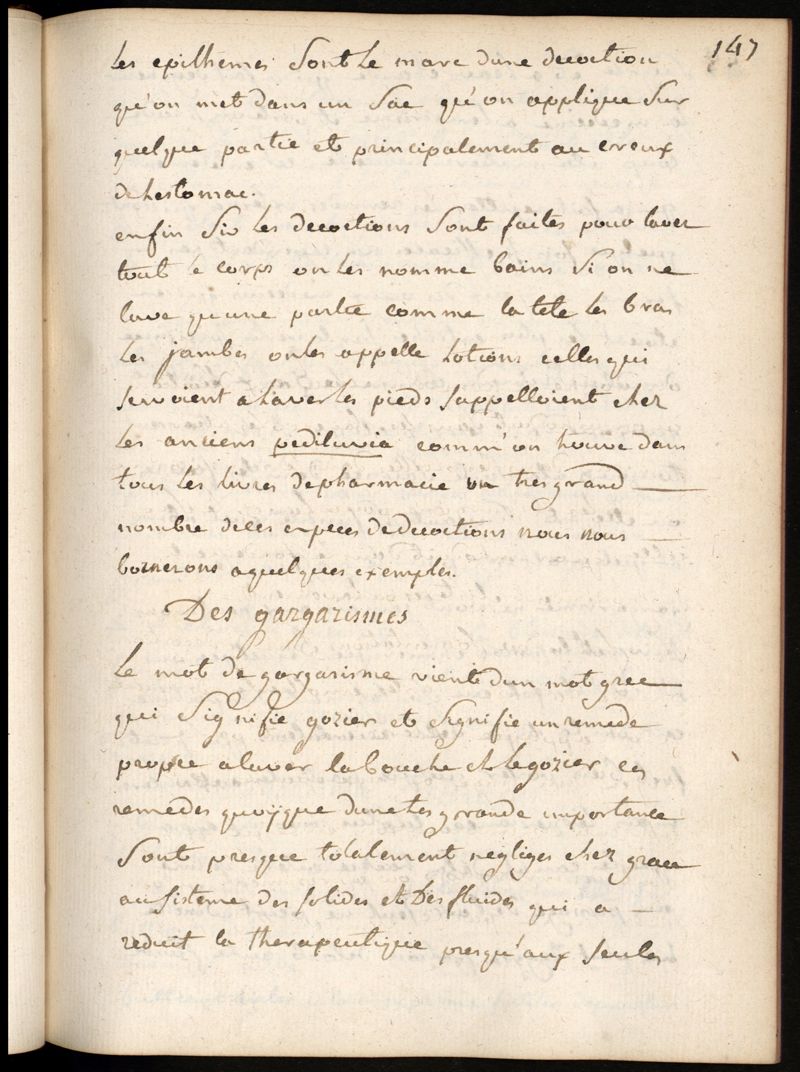 147
les epithemes sont le marc dune decoction
qu'on met dans un sac qu'on applique sur
quelque partie et principalement au creux
de lestomac.
enfin si les decoctions sont faites pour laver
tout le corps on les nomme bains si on ne
lave qu'une partie comme la tete les bras
les jambes on les appelle lotions celles qui
servoient a laver les pieds sappelloient chez
les anciens pediluvia comm'on trouve dans
tous les livres de pharmacie un tres grand
nombre de ces especes de decoctions nous nous
bornerons a quelques exemples.
Des gargarismes
le mot de gargarisme vient dun mot grec
qui signifie gozier et signifie un remede
propre a laver la bouche et le gozier ces
remedes quoyque dune tres grande importance
sont presque totalement negligés chez grace
au sisteme des solides et des fluides qui a
reduit la therapeutique presqu'aux seules